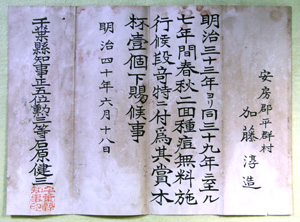 安房郡平群村
加藤淳造
明治三十三年ヨリ同三十九年ニ至ル
七年間春秋二面種痘無料施
行候段奇特ニ付為其賞木
杯壹個下賜候事
明治四十年六月十八日
千葉縣知事正五位勲三等石原健三